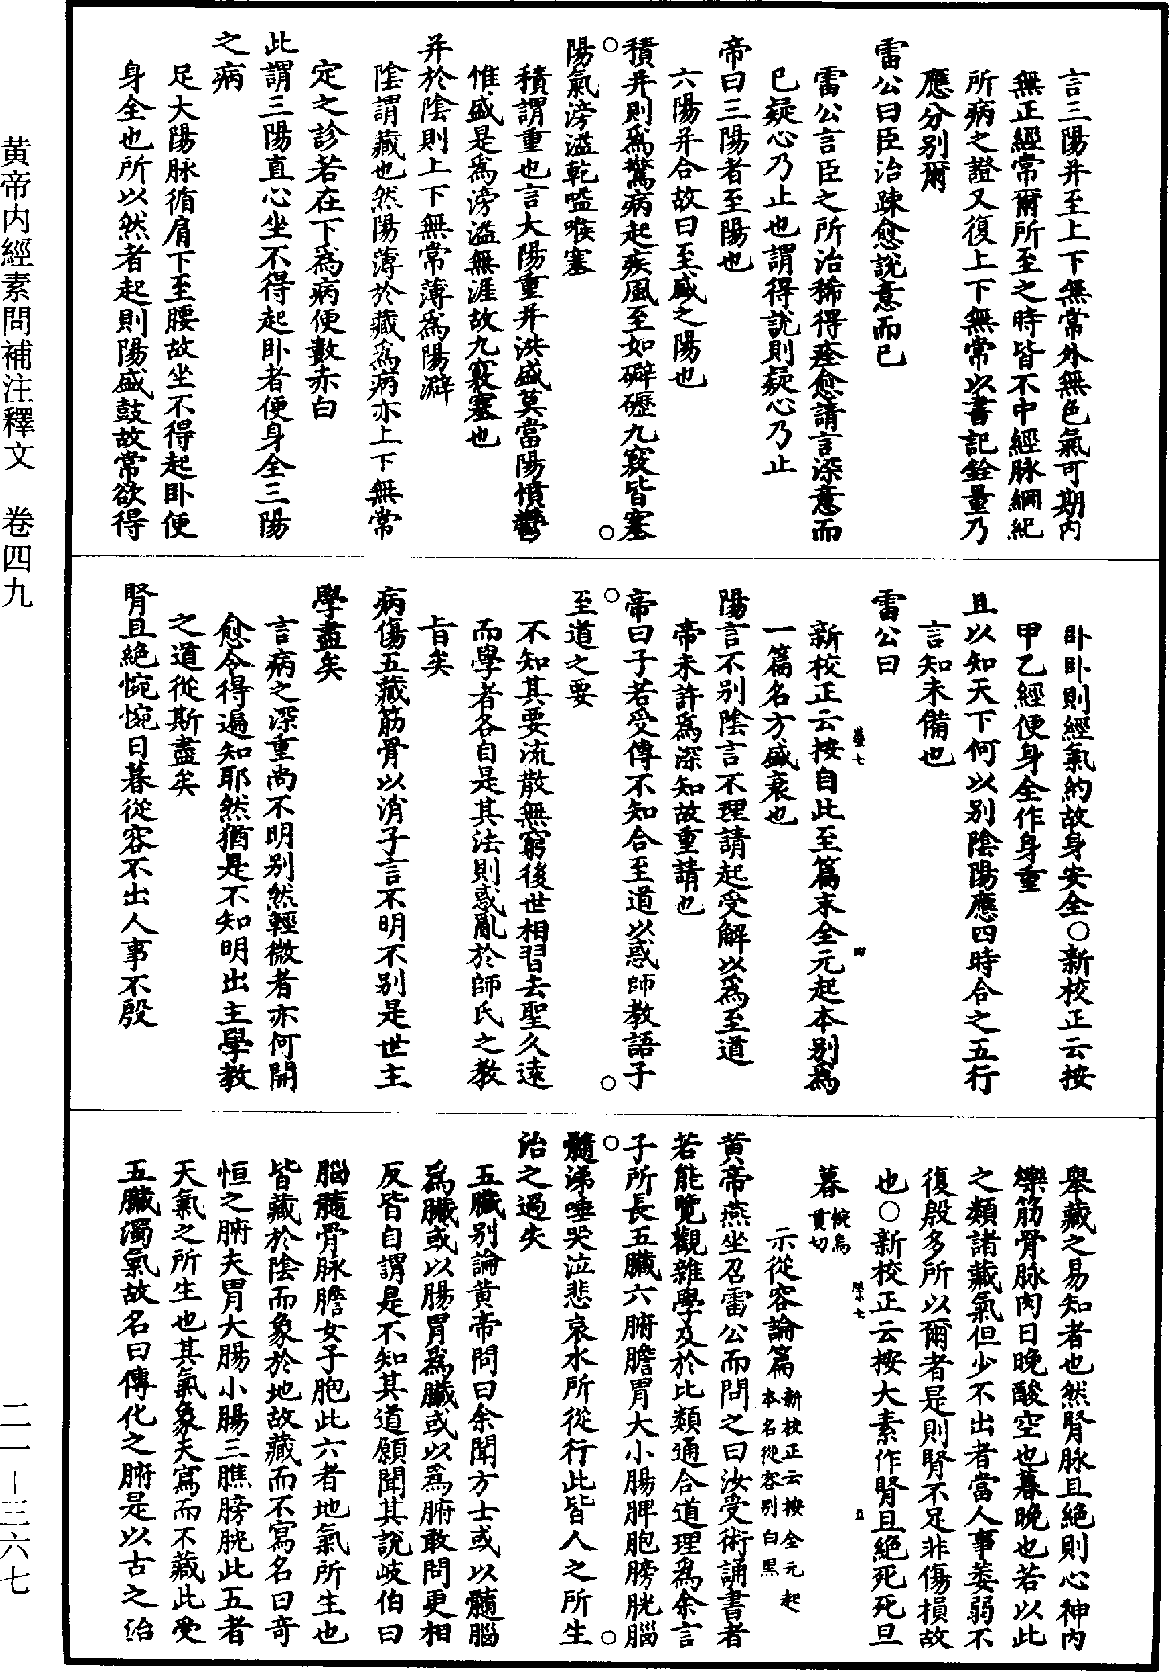 言三陽并至上下無常外無色氣可期内
無正經常爾所至之時皆不中經脉綱紀
所病之證又復上下無常以書記銓量乃
應分別爾
雷公曰臣治疎愈說意而已
雷公言臣之所治稀得痊愈請言深意而
已疑心乃止也謂得說則疑心乃止
帝曰三陽者至陽也
六陽并合故曰至盛之陽也
積并則爲驚病起疾風至如礔礰九竅皆塞
陽氣滂溢乾嗌喉塞
積謂重也言大陽重并洪盛莫當陽憤鬱
惟盛是爲滂溢無涯故九竅塞也
并於陰則上下無常薄爲陽澼
陰謂藏也然陽薄於藏爲病亦上下無常
定之診若在下爲病便數赤白
此謂三陽直心坐不得起卧者便身全三陽
之病
足大陽脉循肩下至腰故坐不得起卧便
身全也所以然者起則陽盛鼓故常欲得
卧卧則經氣約故身安全○新校正云按
甲乙經便身全作身重
且以知天下何以別陰陽應四時合之五行
言知未備也
雷公曰
新校正云按自此至篇末全元起本別爲
一篇名方盛衰也
陽言不別陰言不理請起受解以爲至道
帝未許爲深知故重請也
帝曰子若受傳不知合至道以惑師教語子
至道之要
不知其要流散無窮後世相習去聖久遠
而學者各自是其法則惑亂於師氏之教
旨矣
病傷五藏筋骨以消子言不明不別是世主
學盡矣
言病之深重尚不明別然輕微者亦何開
愈令得遍知耶然猶是不知明出主學教
之道從斯盡矣
腎且絕惋惋日暮從容不出人事不殷
舉藏之易知者也然腎脉且絕則心神内
爍筋骨脉肉日晚酸空也暮晚也若以此
之類諸藏氣但少不出者當人事萎弱不
復殷多所以爾者是則腎不足非傷損故
也○新校正云按大素作腎且絕死死旦
暮惋烏貫切
示從容論篇新校正云按全元起本名從容別白黑
黄帝燕坐召雷公而問之曰汝受術誦書者
若能覽觀雜學及於比類通合道理爲余言
子所長五臟六腑膽胃大小腸脾胞膀胱腦
髓涕唾哭泣悲哀水所從行此皆人之所生
治之過失
五臟別論黄帝問曰余聞方士或以髓腦
爲臟或以腸胃爲臟或以爲腑敢問更相
反皆自謂是不知其道願聞其說岐伯曰
腦髓骨脉膽女子胞此六者地氣所生也
皆藏於陰而象於地故藏而不寫名曰奇
恒之腑夫胃大腸小腸三膲膀胱此五者
天氣之所生也其氣象天寫而不藏此受
五臟濁氣故名曰傳化之腑是以古之治
黄帝内經素問補注釋文 卷四九
二一－三六七